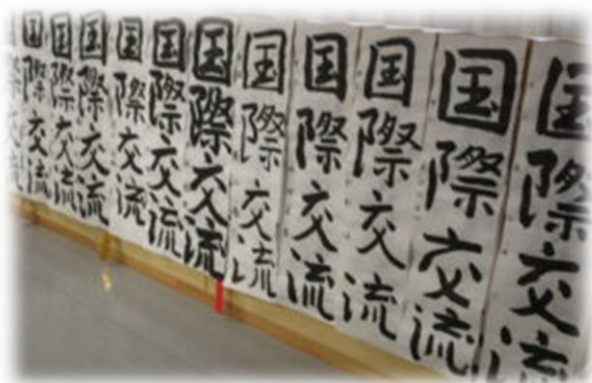 国際交流
国際交流
国際交流
国際交流
国際交流
国際交流
国際交流
国際交流
国際交流
国際交流
国際交流